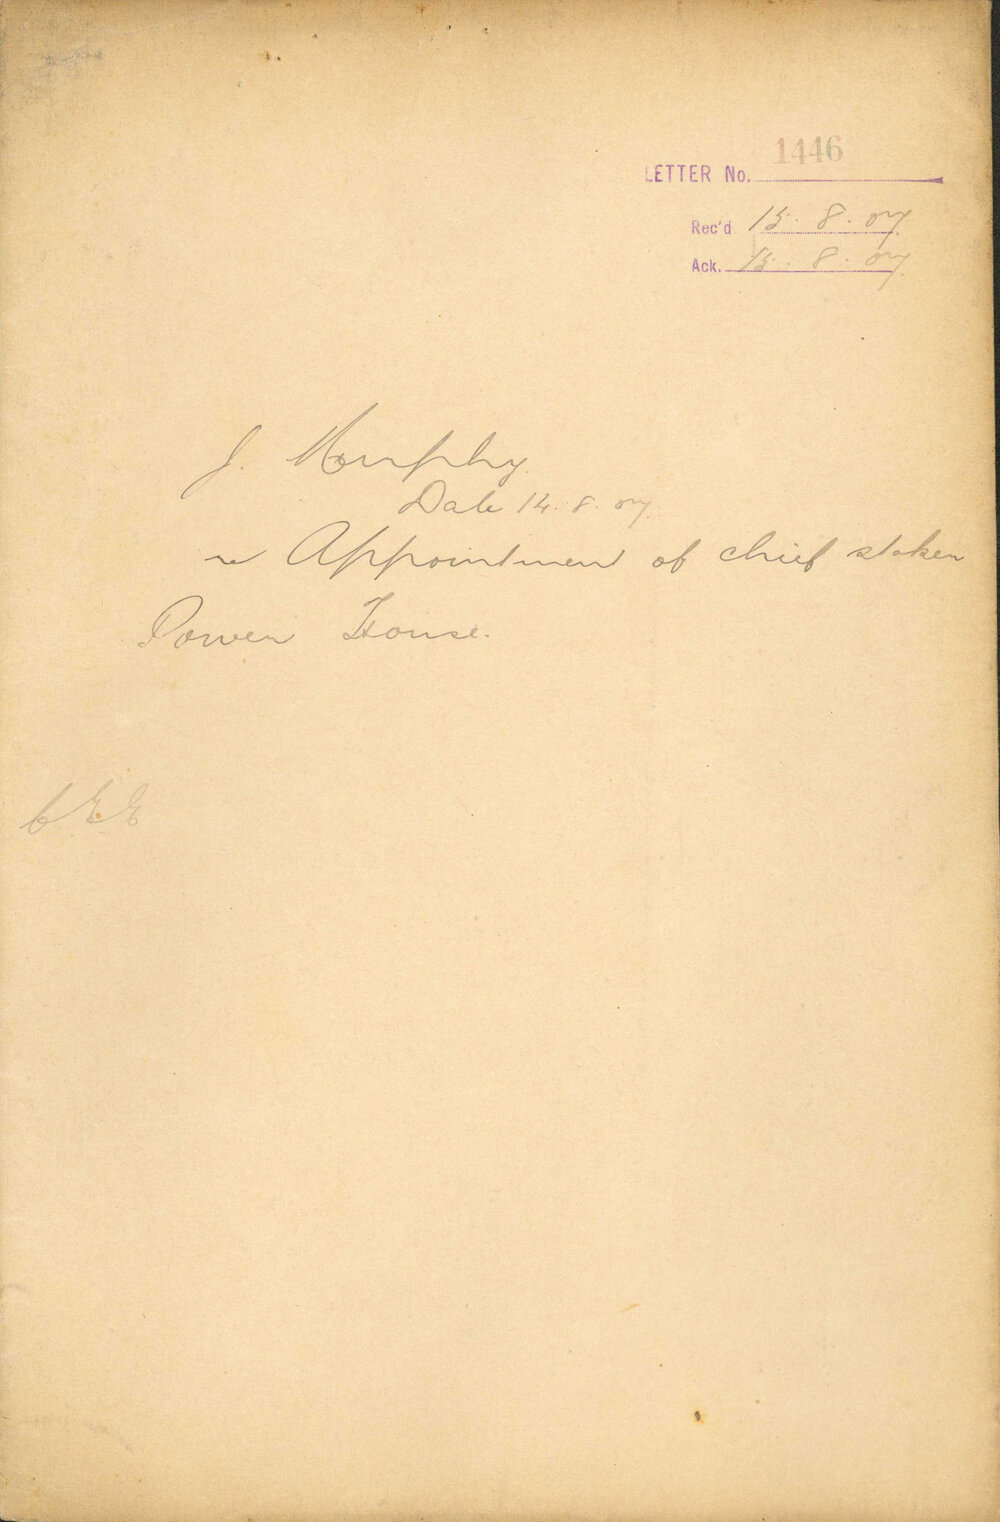 LETTER No. 1446
Rec'd 15. 8. 07
Ack. 15. 8. 07
J. Murphy
Date 14. 8. 07.
re Appointment of chief stoker
Power House.
CEE